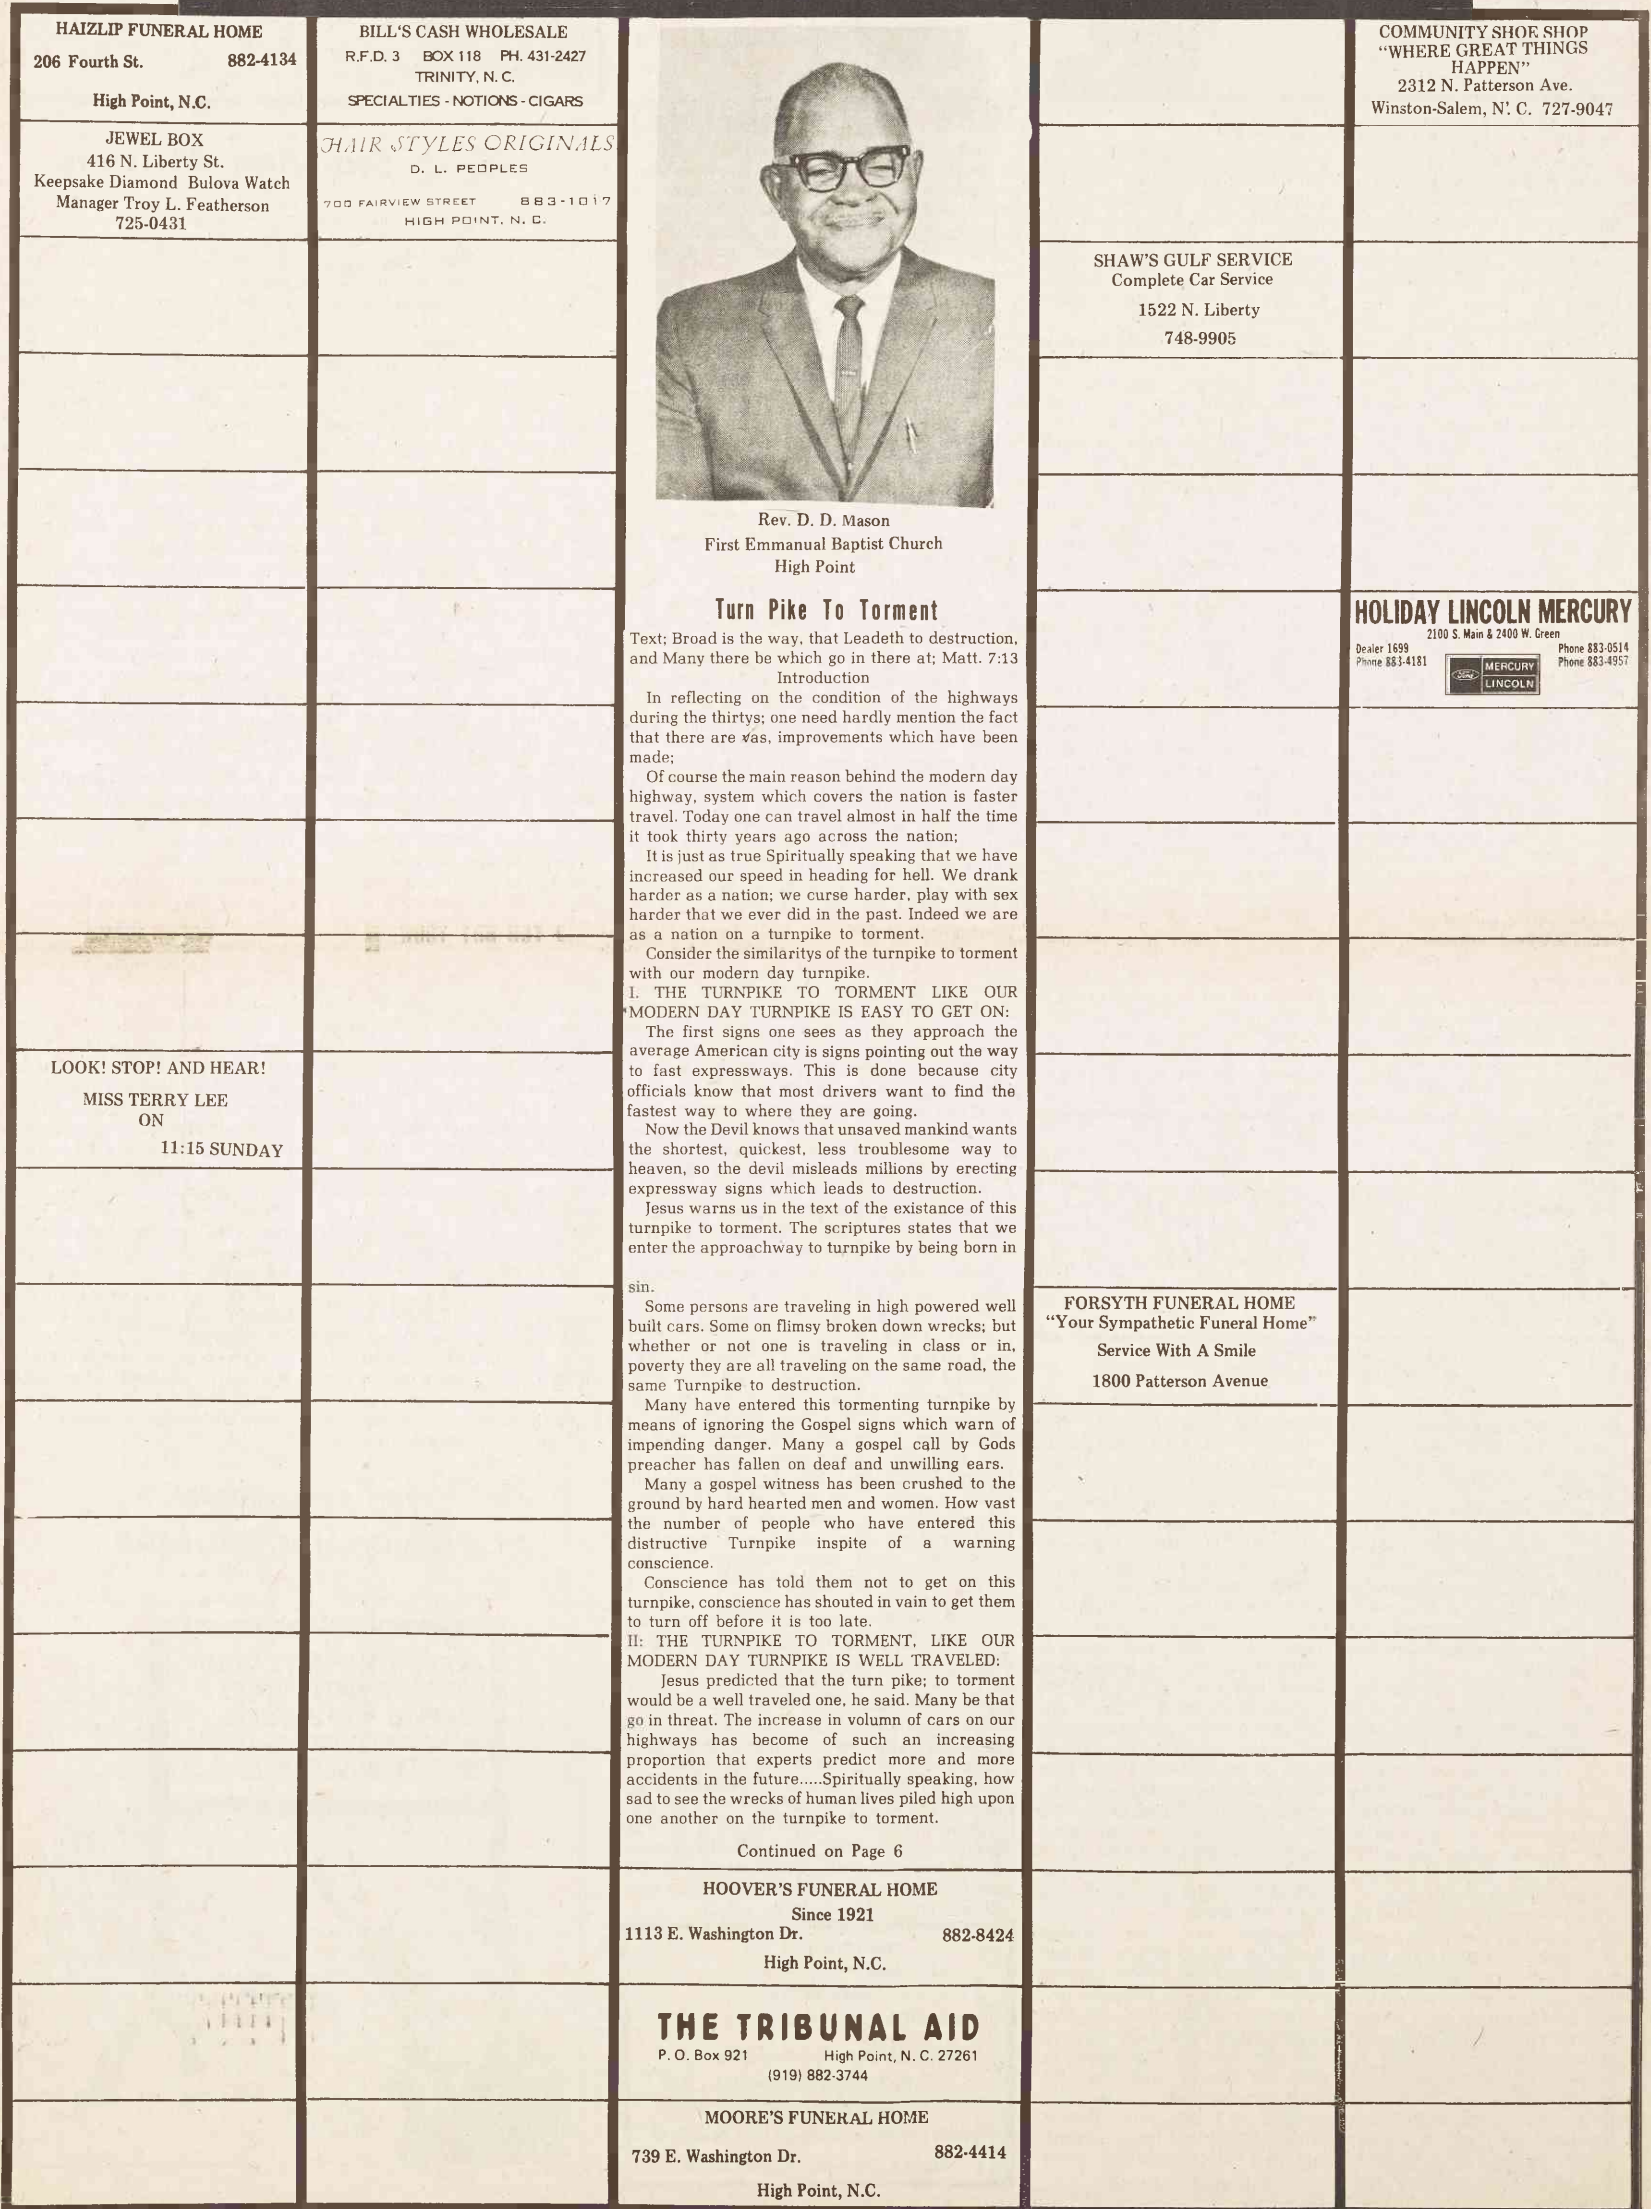 HAIZLIP FUNERAL HOME
206 Fourth St. 882-4134
High Point, N.C.
JEWEL BOX
416 N. Liberty St.
Keepsake Diamond Bulova Watch
Manager Troy L. Featherson
725-0431
LOOK! STOP! AND HEAR!
MISS TERRY LEE
ON
11:15 SUNDAY
BILL'S CASH WHOLESALE
R.F.D. 3 BOX 118 PH. 431-2427
TRINITY, N. C.
SPECIALTIES - NOTIONS - CIGARS
HAIR STYLES ORIGINALS
D. L. PEOPLES
700 FAIRVIEW STREET 883-1017
HIGH POINT, N. C.
Rev. D. D. Mason
First Emmanual Baptist Church
High Point
Turn Pike To Torment
Text; Broad is the way, that Leadeth to destruction,
and Many there be which go in there at; Matt. 7:13
Introduction
In reflecting on the condition of the highways
during the thirtys; one need hardly mention the fact
that there are vas, improvements which have been
made;
Of course the main reason behind the modern day
highway, system which covers the nation is faster
travel. Today one can travel almost in half the time
it took thirty years ago across the nation;
It is just as true Spiritually speaking that we have
increased our speed in heading for hell. We drank
harder as a nation; we curse harder, play with sex
harder that we ever did in the past. Indeed we are
as a nation on a turnpike to torment.
Consider the similaritys of the turnpike to torment
with our modern day turnpike.
I. THE TURNPIKE TO TORMENT LIKE OUR
MODERN DAY TURNPIKE IS EASY TO GET ON:
The first signs one sees as they approach the
average American city is signs pointing out the way
to fast expressways. This is done because city
officials know that most drivers want to find the
fastest way to where they are going.
Now the Devil knows that unsaved mankind wants
the shortest, quickest, less troublesome way to
heaven, so the devil misleads millions by erecting
expressway signs which leads to destruction.
Jesus warns us in the text of the existance of this
turnpike to torment. The scriptures states that we
enter the approachway to turnpike by being born in
sin.
Some persons are traveling in high powered well
built cars. Some on flimsy broken down wrecks; but
whether or not one is traveling in class or in,
poverty they are all traveling on the same road, the
same Turnpike to destruction.
Many have entered this tormenting turnpike by
means of ignoring the Gospel signs which warn of
impending danger. Many a gospel call by Gods
preacher has fallen on deaf and unwilling ears.
Many a gospel witness has been crushed to the
ground by hard hearted men and women. How vast
the number of people who have entered this
distructive Turnpike inspite of a warning
conscience.
Conscience has told them not to get on this
turnpike, conscience has shouted in vain to get them
to turn off before it is too late.
II: THE TURNPIKE TO TORMENT, LIKE OUR
MODERN DAY TURNPIKE IS WELL TRAVELED:
Jesus predicted that the turn pike; to torment
would be a well traveled one, he said. Many be that
go in threat. The increase in volumn of cars on our
highways has become of such an increasing
proportion that experts predict more and more
accidents in the future.....Spiritually speaking, how
sad to see the wrecks of human lives piled high upon
one another on the turnpike to torment.
Continued on Page 6
HOOVER'S FUNERAL HOME
Since 1921
1113 E. Washington Dr. 882-8424
High Point, N.C.
THE TRIBUNAL AID
P. O. Box 921 High Point, N. C. 27261
(919) 882-3744
MOORE'S FUNERAL HOME
739 E. Washington Dr. 882-4414
High Point, N.C.
SHAW'S GULF SERVICE
Complete Car Service
1522 N. Liberty
748-9905
FORSYTH FUNERAL HOME
"Your Sympathetic Funeral Home"
Service With A Smile
1800 Patterson Avenue
COMMUNITY SHOE SHOP
"WHERE GREAT THINGS
HAPPEN"
2312 N. Patterson Ave.
Winston-Salem, N. C. 727-9047
HOLIDAY LINCOLN MERCURY
2100 S. Main & 2400 W. Green
Dealer 1699 Phone 883-0514
Phone 883-4181 Phone 883-4957
Ford MERCURY
LINCOLN